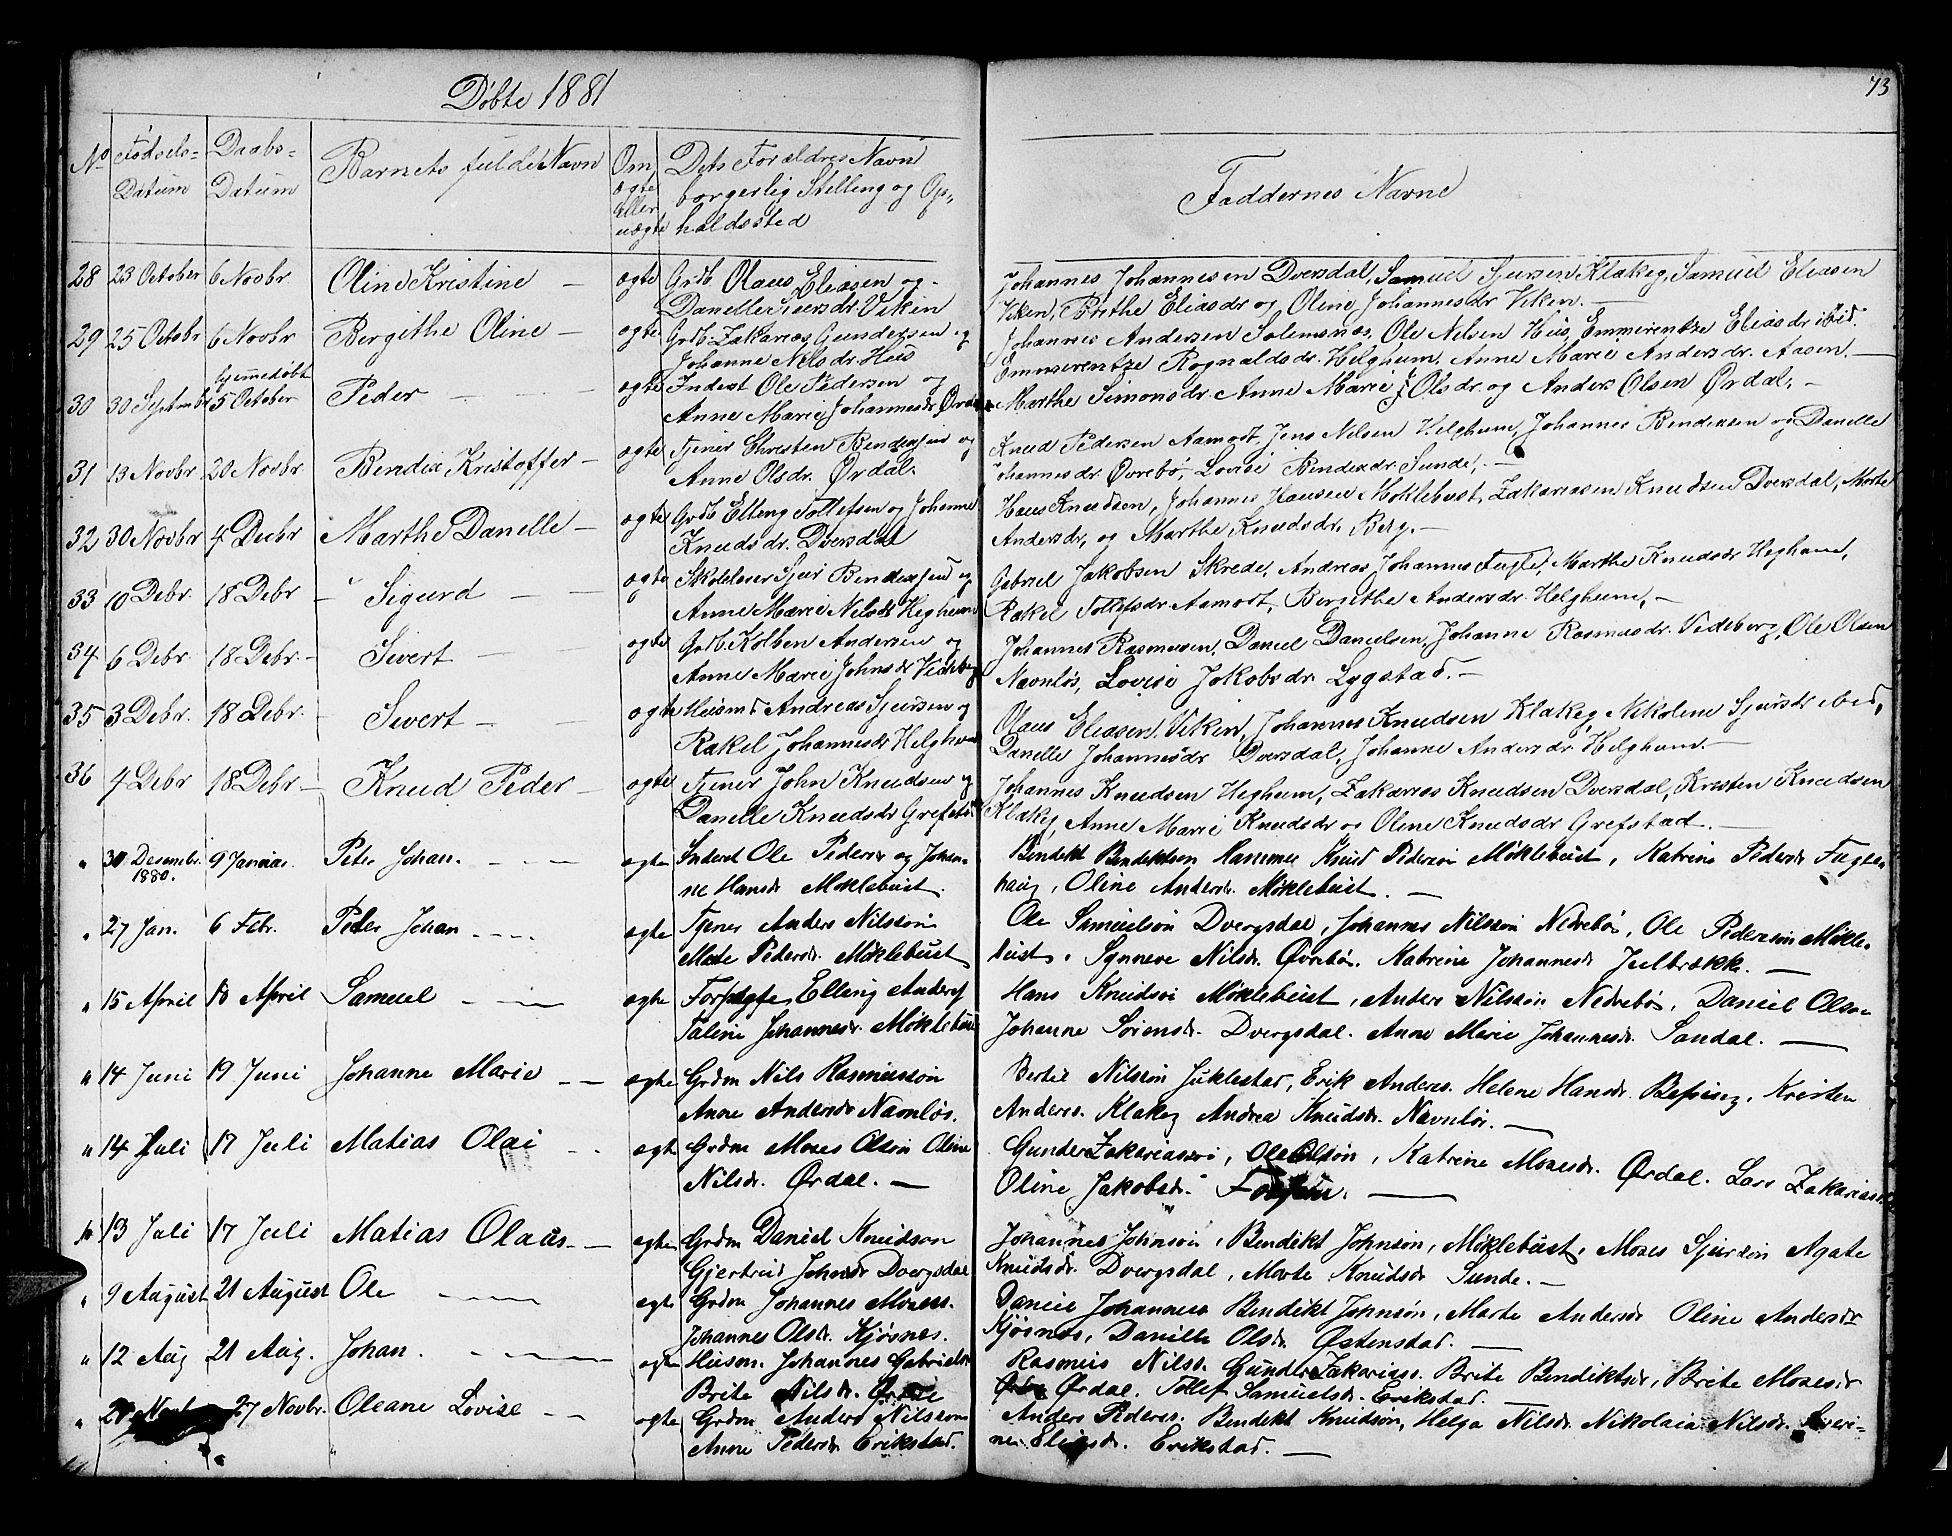 Døbte 1881
73
No Fødsels-Datum Daabs-Datum Barnets fulde Navn Om ægte eller uægte Dets Forældres Navn borgerlig Stilling og Opholdssted
Faddernes Navne
28 23 October 6 Novbr Oline Kristine — ægte Grdb. Olaus Eliasen og
Danelle Siversdr. Viken
Johannes Johannesen Dversdal, Samuel Sjursen Klakeg, Samuel Eliasen
Viken, Brithe Eliasdr og Oline Johannesdr Viken. —
29 25 Octobr 6 Novbr Bergithe Oline — ægte Grdb. Zakarias Gundersen og
Johanne Nilsdr. Hus
Johannes Andersen Solemsnes, Ole Nilsen Hus, Emmerentze Eliasdr ibid.
Emmerentze Rognaldsdr. Helghum, Anne Marie Andersdr. Aasen. —
30 30 Septembr hjemmedøbt 5 October Peder — — ægte Inderst Ole Pedersen og
Anne Marie Johannesdr. Ørdal
Marthe Simonsdr. Anne Marie Olsdr. og Anders Olsen Ørdal. —
31 13 Novbr 20 Novbr Bendix Kristoffer — ægte Tjener Christen Bendixsen og
Anne Olsdr. Ørdal.
Knud Pedersen Aamodt, Jens Nilsen Helghum, Johannes Bendixsen og Danelle
Johannesdr. Øvrebø, Lovise Bendixdr. Sunde. —
32 30 Novbr 4 Decbr Marthe Danelle — ægte Grdb. Elling Tollefsen og Johanne
Knudsdr. Dversdal
Hans Knudsen, Johannes Hansen Møklebust, Zakariasen Knudsen Dversdal, Marte
Andersdr, og Marthe Knudsdr. Berg. —
33 10 Debr. 18 Debr — Sigurd — — ægte Skolelærer Sjur Bendixsen og
Anne Marie Nilsdr Heghum
Gabriel Jakobsen Skrede, Andreas Johannes Fugle, Marthe Knudsdr Heghum,
Rakel Tollefsdr Aamodt, Bergithe Andersdr. Helghum. —
34 6 Debr. 18 Debr. — Sivert — ægte Grdb. Kolben Andersen og
Anne Marie Johnsdr Vedeberg
Johannes Rasmusen, Daniel Danielsen, Johanne Rasmusdr. Vedeberg, Ole Olsen
Navnløs, Lovise Jakobsdr. Lygstad. —
35 3 Debr. 18 Debr. — Sivert — — ægte Husmd Andreas Sjursen og
Rakel Johannesdr Helghum
Olaus Eliasen Viken, Johannes Knudsen Klakeg, Nikoline Sjursdr ibid,
Danelle Johannesdr Dversdal, Johanne Andersdr Helghum. —
36 4 Debr 18 Debr — Knud Peder — ægte Tjener John Knudsen og
Danelle Knudsdr Grefstad
Johannes Knudsen Heghum, Zakarias Knudsen Dversdal, Kristen Knudsen
Klakeg, Anne Marie Knudsdr og Oline Knudsdr Grefstad. —
" 30 Desembr. 1880. 9 Januar. Peter Johan. — — — ægte Inderst Ole Pederss og Johan-
ne Hansdr Møklebust.
Bendikt Bendiktson Hammer Knud Pederson Møklebust, Katrine Pedersdr Fugle-
haug, Oline Andersdr. Møklebust. —
" 27 Jan. 6 Febr. Peder Johan — — — ægte Tjener Anders Nilsson
Mate Pedersdr. Møklebust
Ole Samuelson Dvergsdal, Johannes Nilsson Nedrebø, Ole Pederson Møkle-
bust, Synneve Nilsdr. Øvrebø. Katrine Johannesdr Julbrække. —
" 15 April 18 April Samuel — — — ægte Forpagter Elling Anders
Taline Johannesdr. Møklebust
Hans Knudson Møklebust, Anders Nilsson Nedrebø, Daniel Olson
Johanne Sørensdr. Dvergsdal. Anne Marie Johannesdr. Sandal. —
" 14 Juni 19 Juni Johanne Marie — — ægte Grdm Nils Rasmusson
Anne Andersdr Navnløs.
Bertil Nilsson Juklestad, Erik Anderss. Helene Hansdr. Bessing, Kristen
Anderss. Klakeg Andrea Knudsdr. Navnløs. —
" 14 Juli 17 Juli Matias Olai — — ægte Grdm Moses Olson Oline
Nilsdr. Ørdal. —
Gunder Zakariasson, Ole Olson, Katrine Mosesdr. Ørdal. Lars Zakariass.
Oline Jakobsdr. Fossum. —
" 13 Juli 17 Juli Matias Olaus. — ægte Grdm Daniel Knudson
Gjertrud Johnsdr Dvergsdal
Johannes Johnson, Bendikt Johnson, Møklebust, Moses Sjurson Agate
Knudsdr. Dvergsdal, Marte Knudsdr Sunde. —
" 9 August 21 August Ole — — — ægte Grdm Johannes Mosess.
Johannes Olsdr. Kjøsnes.
Daniel Johanness Bendikt Johnson, Marte Andersdr Oline Andersdr
Kjøsnes, Danille Olsdr. Østenstad. —
" 12 Aug 21 Aug. Johan. — — — ægte Husm. Johannes Gabrielss
Brite Nilsdr. Ørdal
Rasmus Nilss. Gunder Zakariass. Brite Bendiktsdr, Brite Mosesdr
Ørdal. Tollef Samuelsdr. Erikstad. —
" Novbr 27 Novbr. Oleane Lovise — — ægte Grdm Anders Nilsson
Anne Pedersdr Erikstad.
Anders Pederss. Bendikt Knudson, Helga Nilsdr. Nikolaia Nilsdr. Severi-
ne Eliasdr. Erikstad. —